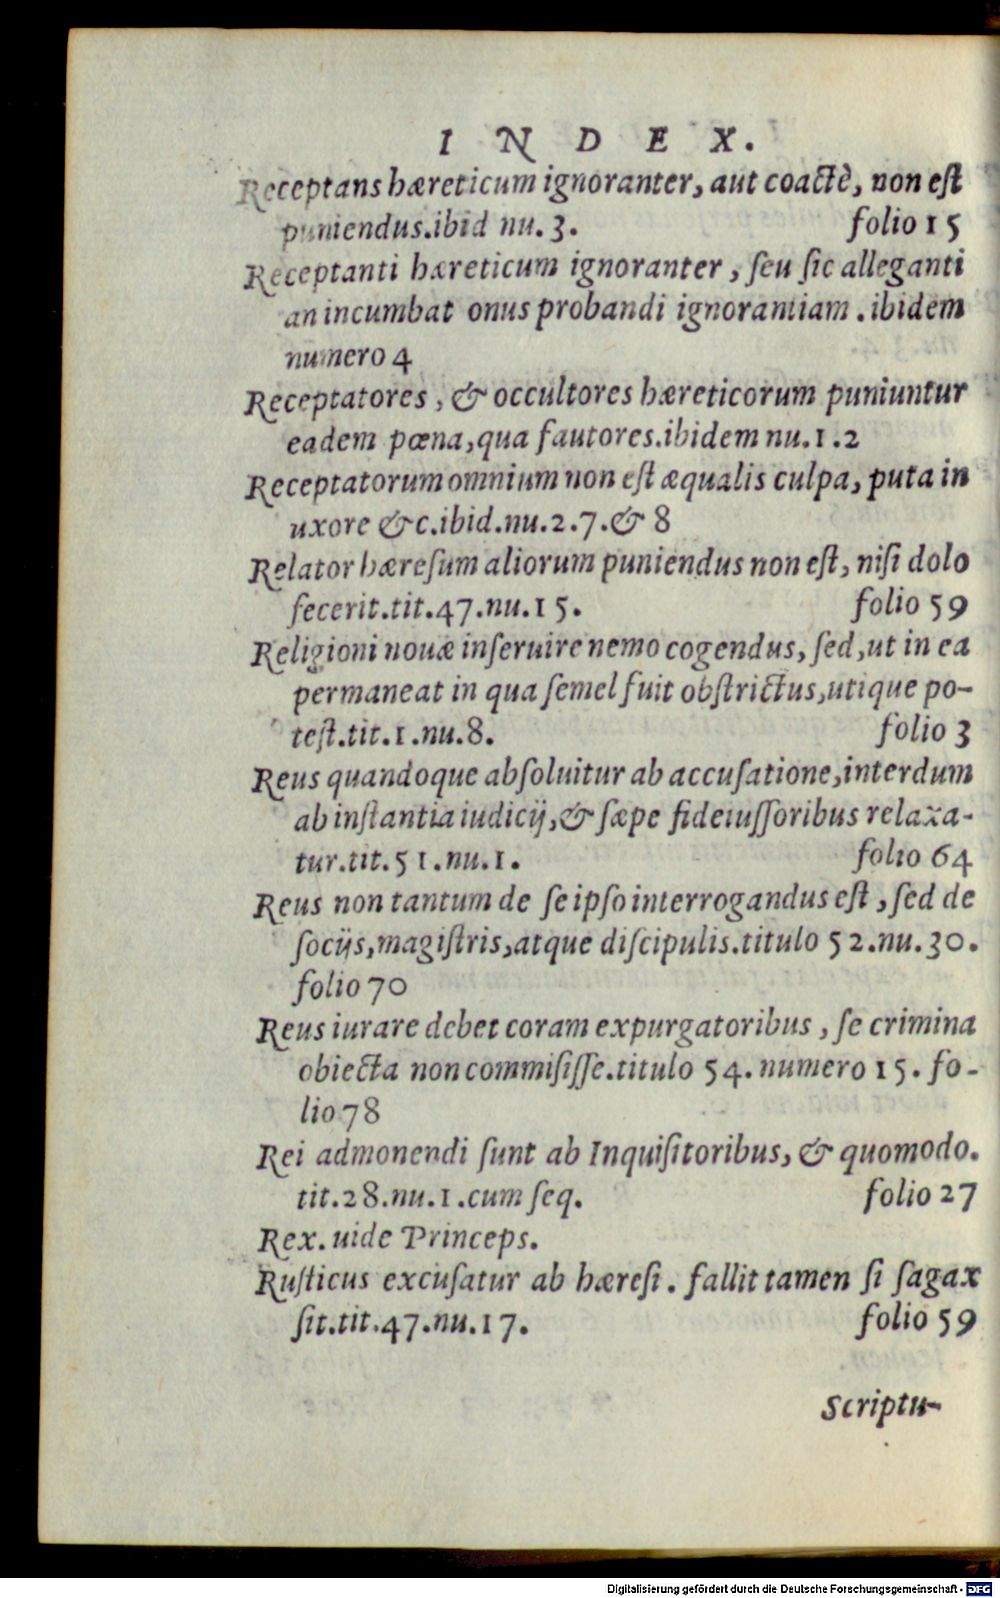 INDEX.
Receptans hæreticum ignoranter, aut coactè, non est
puniendus.ibid nu. 3. folio 15
Receptanti hæreticum ignoranter, seu sic alleganti
an incumbat onus probandi ignorantiam. ibidem
numero 4
Receptatores, & occultores hæreticorum puniuntur
eadem pœna, qua fautores.ibidem nu.1.2
Receptatorum omnium non est æqualis culpa, puta in
uxore &c.ibid.nu.2.7.& 8
Relator hæresum aliorum puniendus non est, nisi dolo
fecerit.tit.47.nu.15. folio 59
Religioni nouæ inseruire nemo cogendus, sed, ut in ea
permaneat in qua semel fuit obstrictus, utique po-
test.tit.1.nu.8. folio 3
Reus quandoque absoluitur ab accusatione, interdum
ab instantia iudicij, & sæpe fideiussoribus relaxa-
tur.tit.51.nu.1. folio 64
Reus non tantum de se ipso interrogandus est, sed de
socijs, magistris, atque discipulis.titulo 52.nu.30.
folio 70
Reus iurare debet coram expurgatoribus, se crimina
obiecta non commisisse.titulo 54. numero 15. fo-
lio 78
Rei admonendi sunt ab Inquisitoribus, & quomodo.
tit.28.nu.1.cum seq. folio 27
Rex. uide Princeps.
Rusticus excusatur ab hæresi. fallit tamen si sagax
sit.tit.47.nu.17. folio 59
Scriptu-
Digitalisierung gefördert durch die Deutsche Forschungsgemeinschaft - DFG